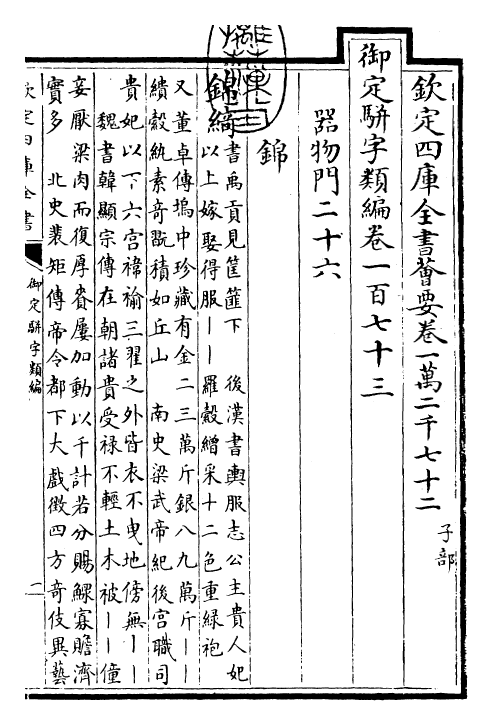 欽定四庫全書薈要卷一萬二千七十二 子部
御定駢字類編卷一百七十三
器物門二十六
錦
錦綺書禹貢見筐篚下 後漢書輿服志公主貴人妃
以上嫁娶得服||羅縠繒采十二色重緑袍
又董卓傳塢中珍藏有金二三萬斤銀八九萬斤||
繢縠紈素奇翫積如丘山 南史梁武帝紀後宫職司
貴妃以下六宫褘褕三翟之外皆衣不曳地傍無||
魏書韓顯宗傳在朝諸貴受禄不輕土木被||僮
妾厭粱肉而復厚賚屢加動以千計若分賜鰥寡贍濟
實多 北史裴矩傳帝令都下大戲徵四方奇伎異藝
欽定四庫全書
御定駢字類編